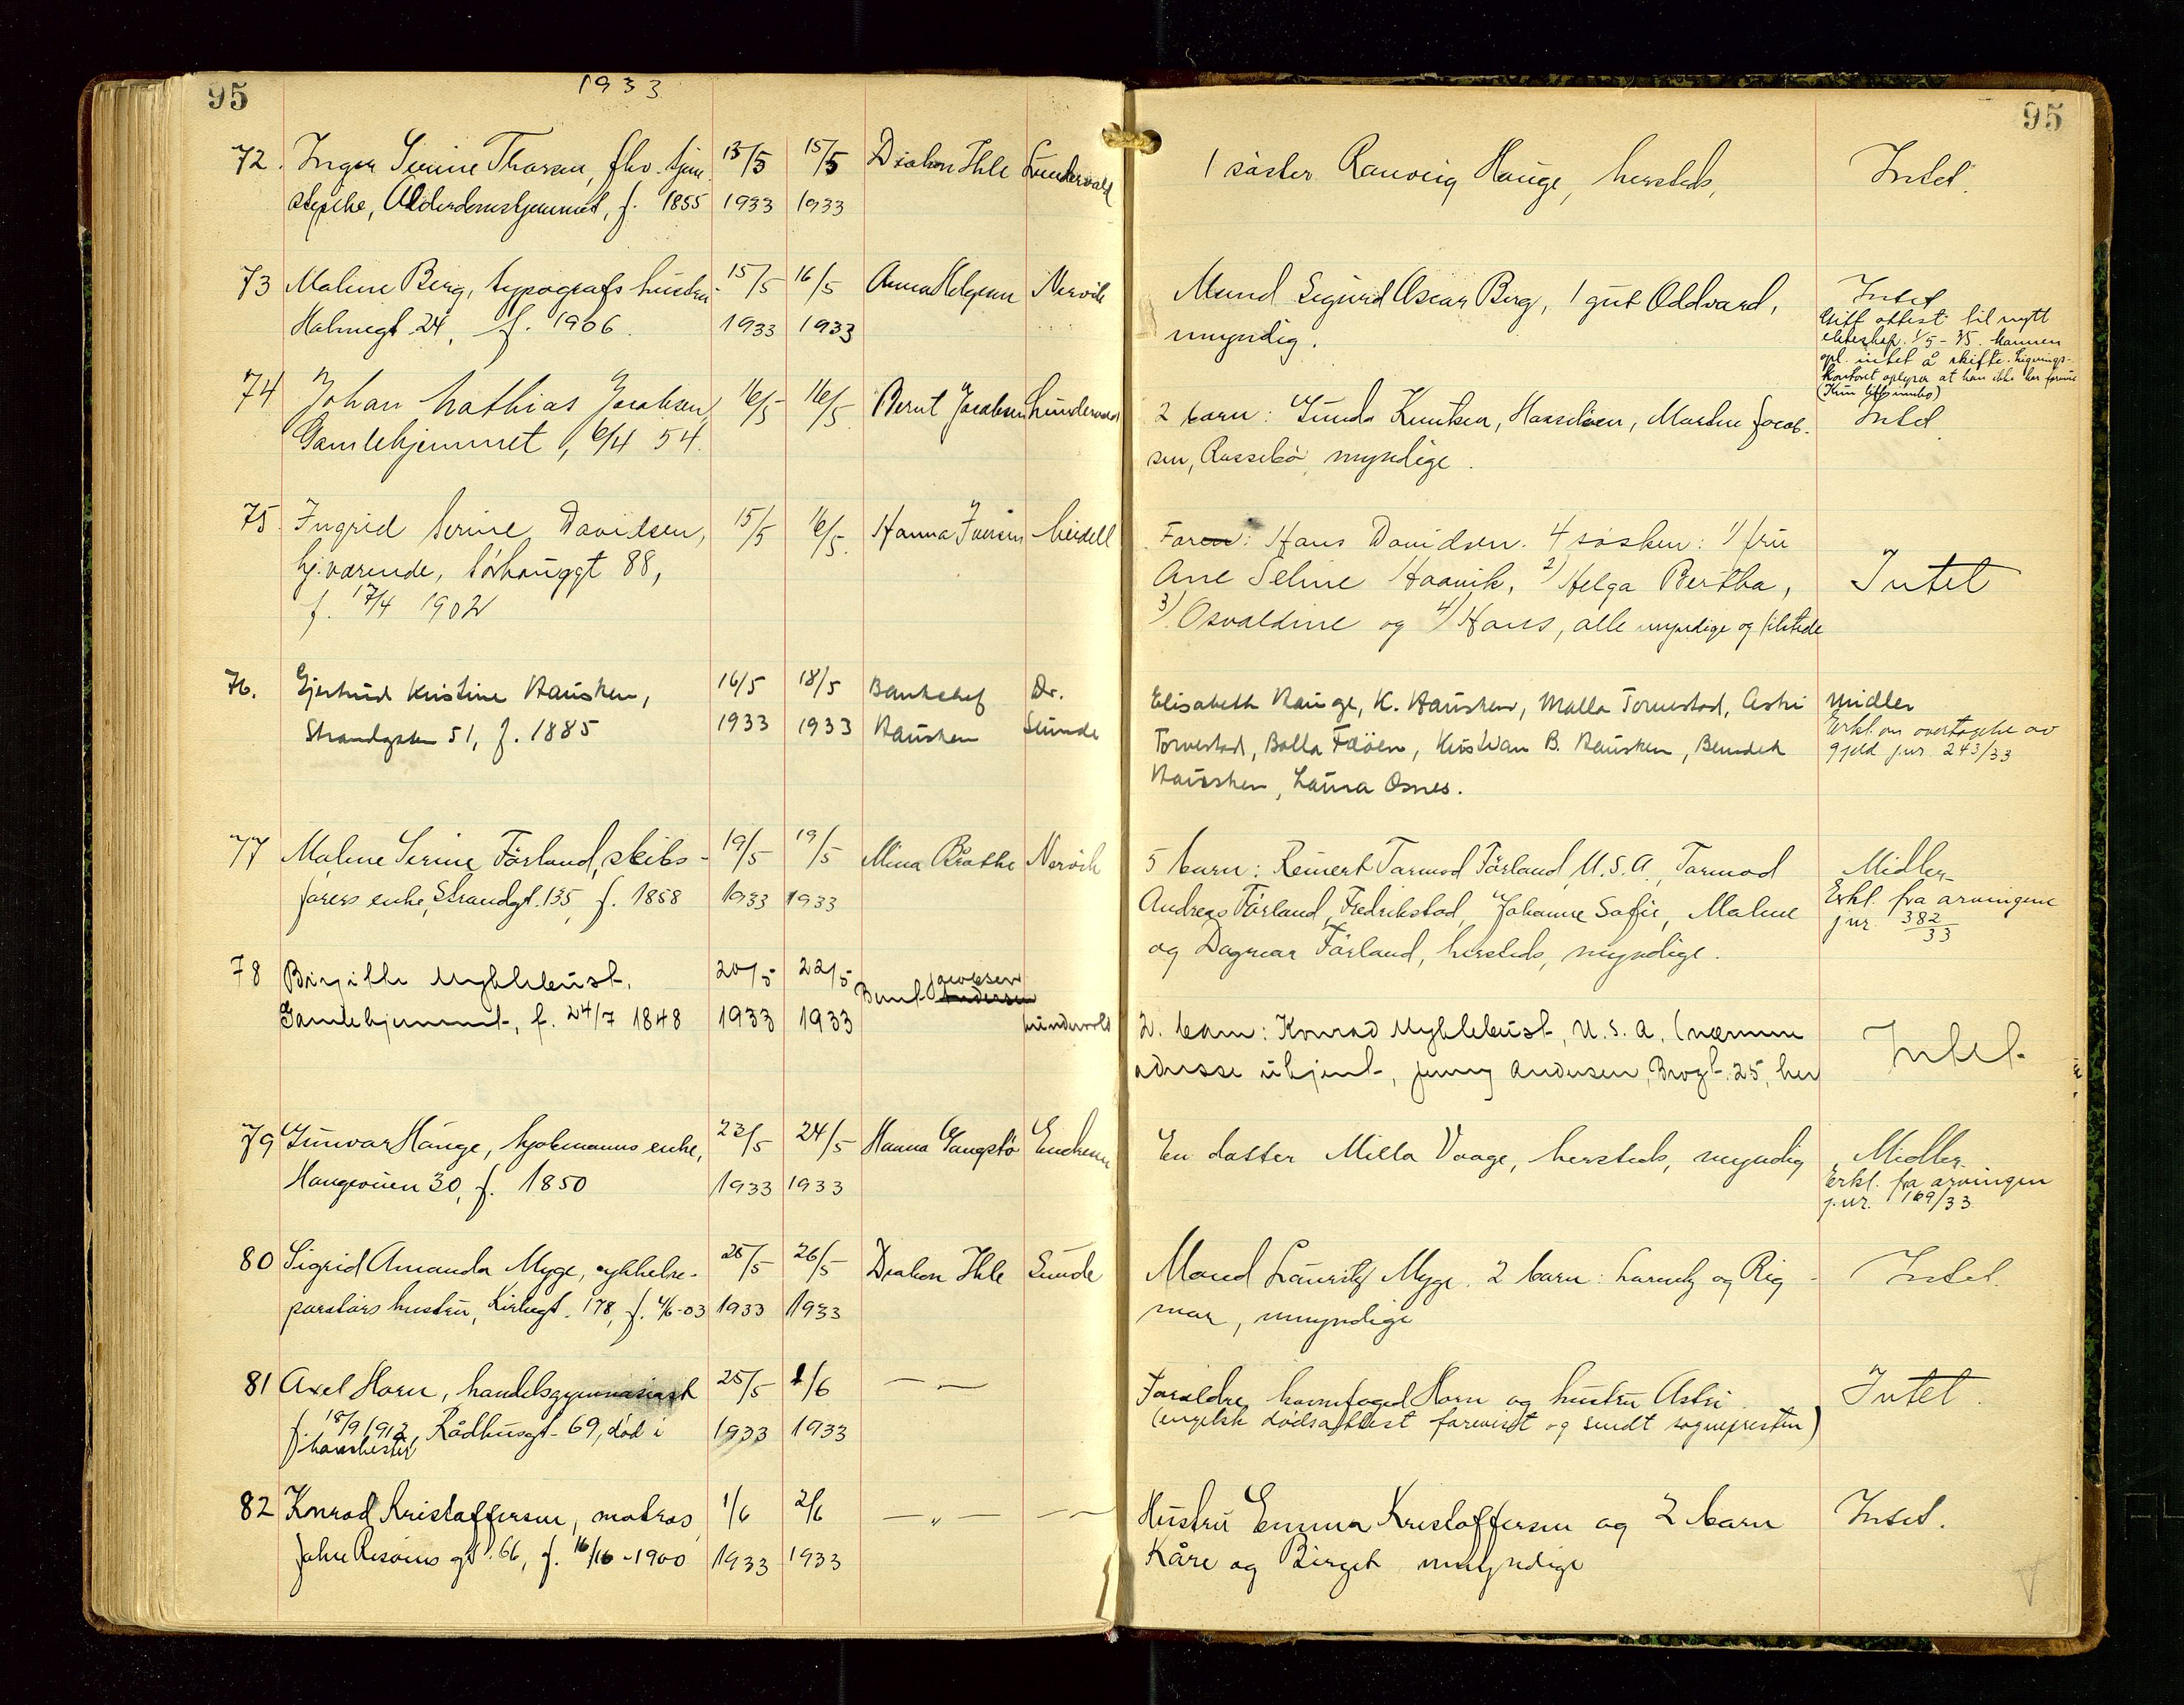 95
1933
72. Inger Serine Thorsen, fhv. tjene
stepike, Alderdomshjemmet, f. 1855
13/5 1933
15/5 1933
Diakon Ihle
Lundervold
73 Maline Berg, typografs hustru
24, f. 1906.
15/5 1933
16/5 1933
Anna Helgesen
Nervik
74 Johan Mathias Jacobsen,
Gamlehjemmet, 6/4 54.
16/5
16/5
Bernt Jacobsen
Lundervold
75 Ingrid Serine Davidsen,
hj.værende, Sørhauggt 88,
f. 17/4 1902
15/5
16/5.
Hanna Iversen
Meidell
76. Gjertrud Kristine Hausken,
Strandgaten 51, f. 1885
16/5 1933
18/5 1933
Bankchef
Hausken
Dr.
Sunde
77 Maline Serine Förland, skibs-
förers enke, Strandgt. 135, f. 1858
19/5 1933
19/5 1933
Mina Bråthe
Nervik
78 Birgithe Myklebust,
Gamlehjemmet, f. 24/7 1848
20/5 1933
22/5 1933
Bernt Jacobsen
Andersen
Lundervold
79 Gunvor Hauge, sjømanns enke,
Haugeveien 30, f. 1850
23/5 1933
24/5 1933
Hanna
80 Sigrid Amanda Myge, cykkelre-
paratørs hustru, Kirkegt. 178, f. 4/6-03
25/5 1933
26/5 1933
Diakon Ihle
Sunde
81 Axel Horn, handelsgymnasiast
f. 18/9 1912, Rådhusgt. 69, død i
Manchester
25/5 1933
1/6 1933
— „ —
82 Konrad Kristoffersen, matros,
gt. 66, f. 16/10-1900
1/6 1933
2/6 1933
— „ —
— „ —
95
1 søster Ranveig Hauge, hersteds,
Intet.
Mand Sigurd Oscar Berg, 1 gut Oddvard,
umyndig.
Intet
Gitt attest til nytt
ekteskap. 1/5-35. Mannen
opl. intet å skifte. Lignings-
kontoret oplyser at han ikke har formue
(Kun litt innbo)
2 barn: Gunda Knutsen, Hasseløen, Martin Jacob-
sen, Rossebø, myndige.
Intet
Faren: Hans Davidsen. 4 søsken: 1/ fru
Ane Seline Haavik, 2/ Helga Bertha,
3/ Osvaldine og 4/ Hans, alle myndige og tilstede
Intet
Elisabeth Hauge, K. Hausken, Malla Torvestad, Astri
Torvestad, Bolla Fåöen, Kristian B. Hausken, Benedik
Hausken, Laura Osnes.
Midler
Erkl. om overtagelse av
gjeld jnr. 243/33
5 barn: Reinert Tormod Förland, U.S.A., Tormod
Andreas Förland, Fredrikstad, Johanne Sofie, Maline
og Dagmar Förland, hersteds, myndige.
Midler
Erkl. fra arvingene
jnr. 382/33
2. barn: Konrad Myklebust, U.S.A. (nærmere
adresse ukjent, Jenny Andersen, Brogt. 25, her
Intet
En datter Milla Vaage, hersteds, myndig
Midler
Erkl. fra arvingen
jnr. 169/33
Mand Lauritz Myge. 2 barn: og Rig-
mor, umyndige
Intet.
Foreldre havnefoged Horn og hustru Astri
(engelsk dødsattest forevist og sendt sognepresten)
Intet.
Hustru Emma Kristoffersen og 2 barn
Kåre og Birgit umyndige
Intet.